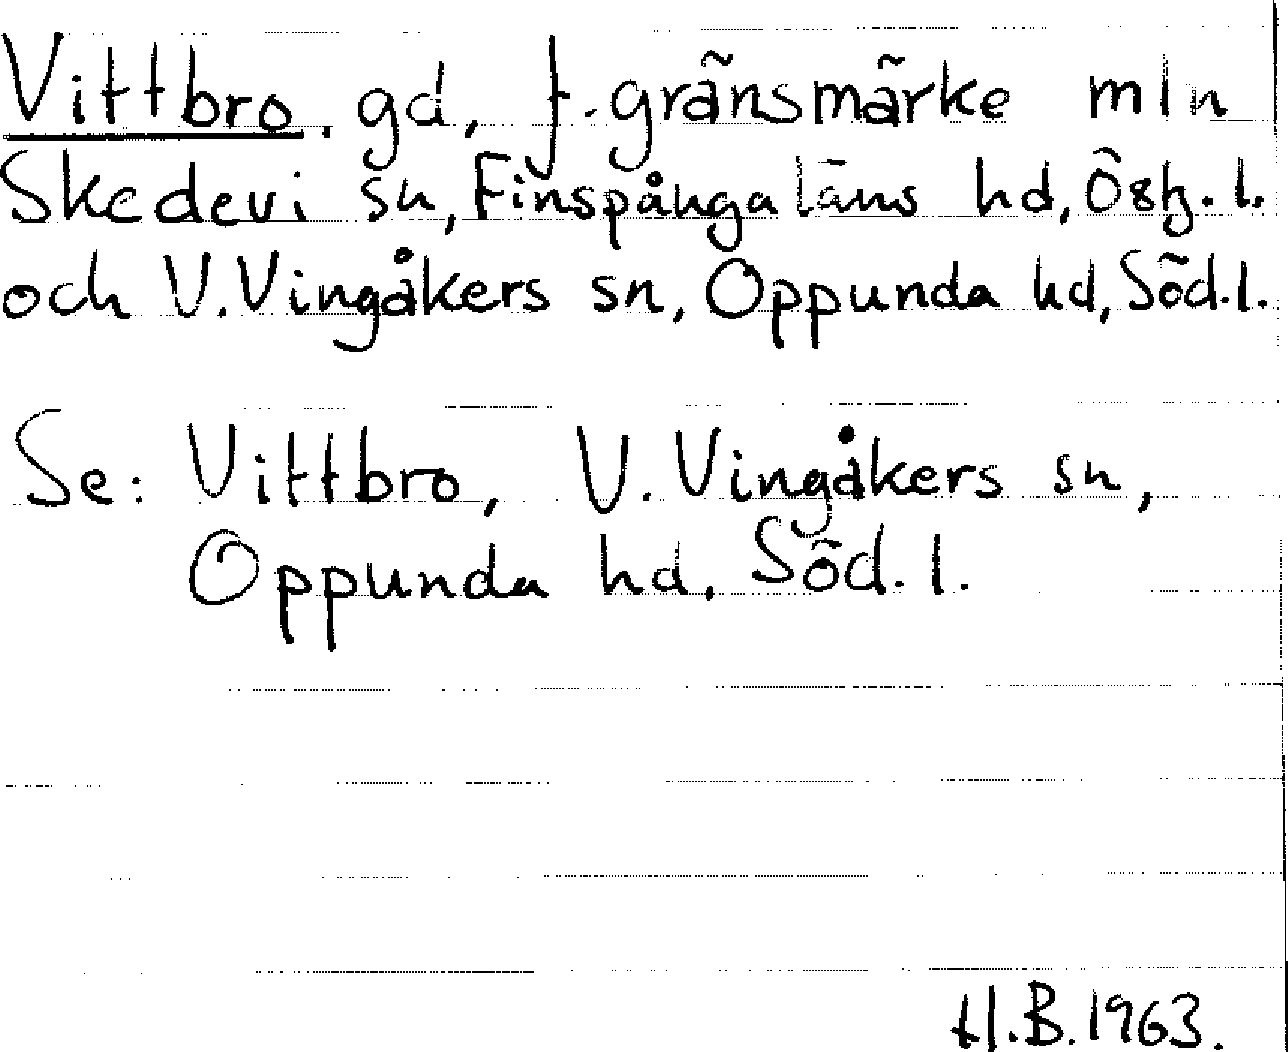 Vittbro. gd, f. gränsmärke mln
Skedevi sn, Finspånga läns hd, Östg. l.
och V. Vingåkers sn, Oppunda hd, Söd. l.
Se: Vittbro, V. Vingåkers sn,
Oppunda hd. Söd. l.
H.B. 1963.